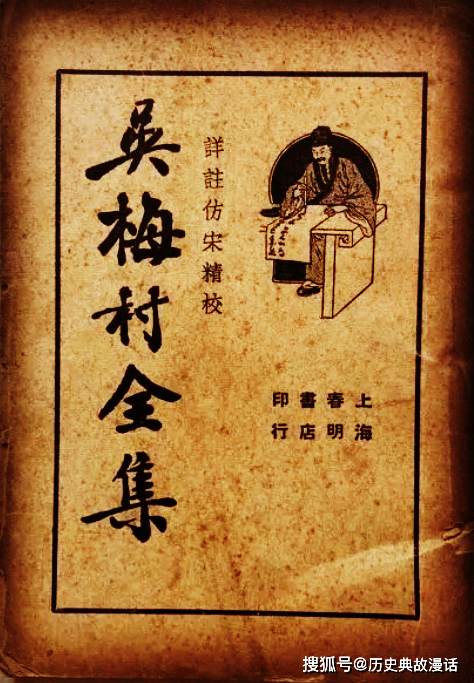 吳梅村全集
詳註仿宋精校
上海
春明
書店
印行
搜狐号@历史典故漫话